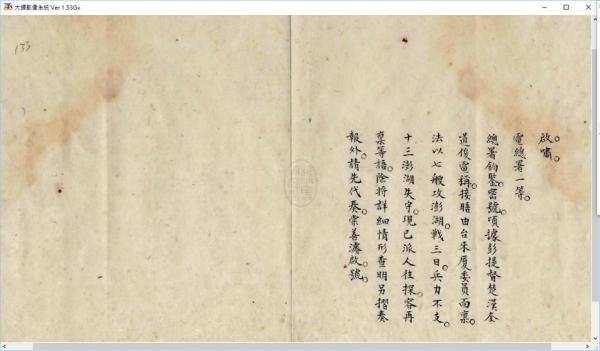 大鐸影像系統 Ver 1.53Gx
133
啟嘯。
電總署一等。
總署鈞鑒。密號。頃據彭提督楚漢奎
道俊電稱。接膳由台來廈委員面稟。
法以七艘攻澎湖。戰三日。兵力不支。
十三澎湖失守。現已派人往探。容再
稟等語。除將詳細情形查明另摺奏
報外。請先代奏。崇善濬啟。號。